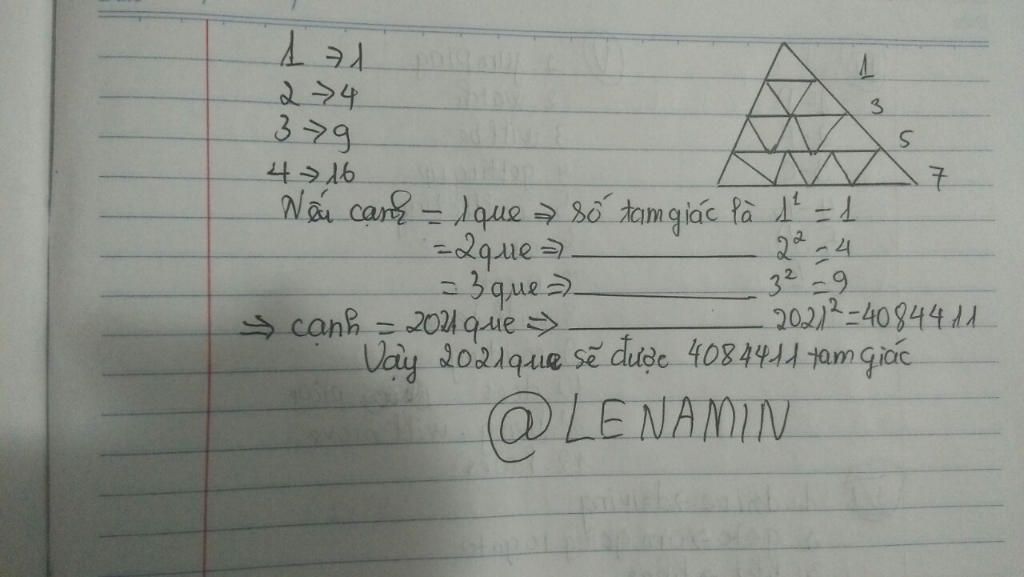 1 → 1
2 → 4
3 → 9
4 → 16
1
3
5
7
Nếu cạnh = 1 que ⇒ số tam giác là 1¹ = 1
= 2 que ⇒ ________ 2² = 4
= 3 que ⇒ ________ 3² = 9
⇒ cạnh = 2021 que ⇒ ________ 2021² = 4084411
Vậy 2021 que sẽ được 4084411 tam giác
@LENAMIN